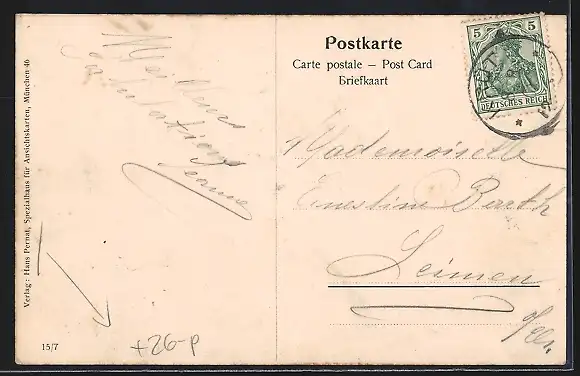 Postkarte
Carte postale – Post Card
Briefkaart
5 5
DEUTSCHES REICH
Meilleures
Mademoiselle
Ernestine Barth
Leimen
Verlag: Hans Pernat, Spezialhaus für Ansichtskarten, München 46
15/7
+26-P